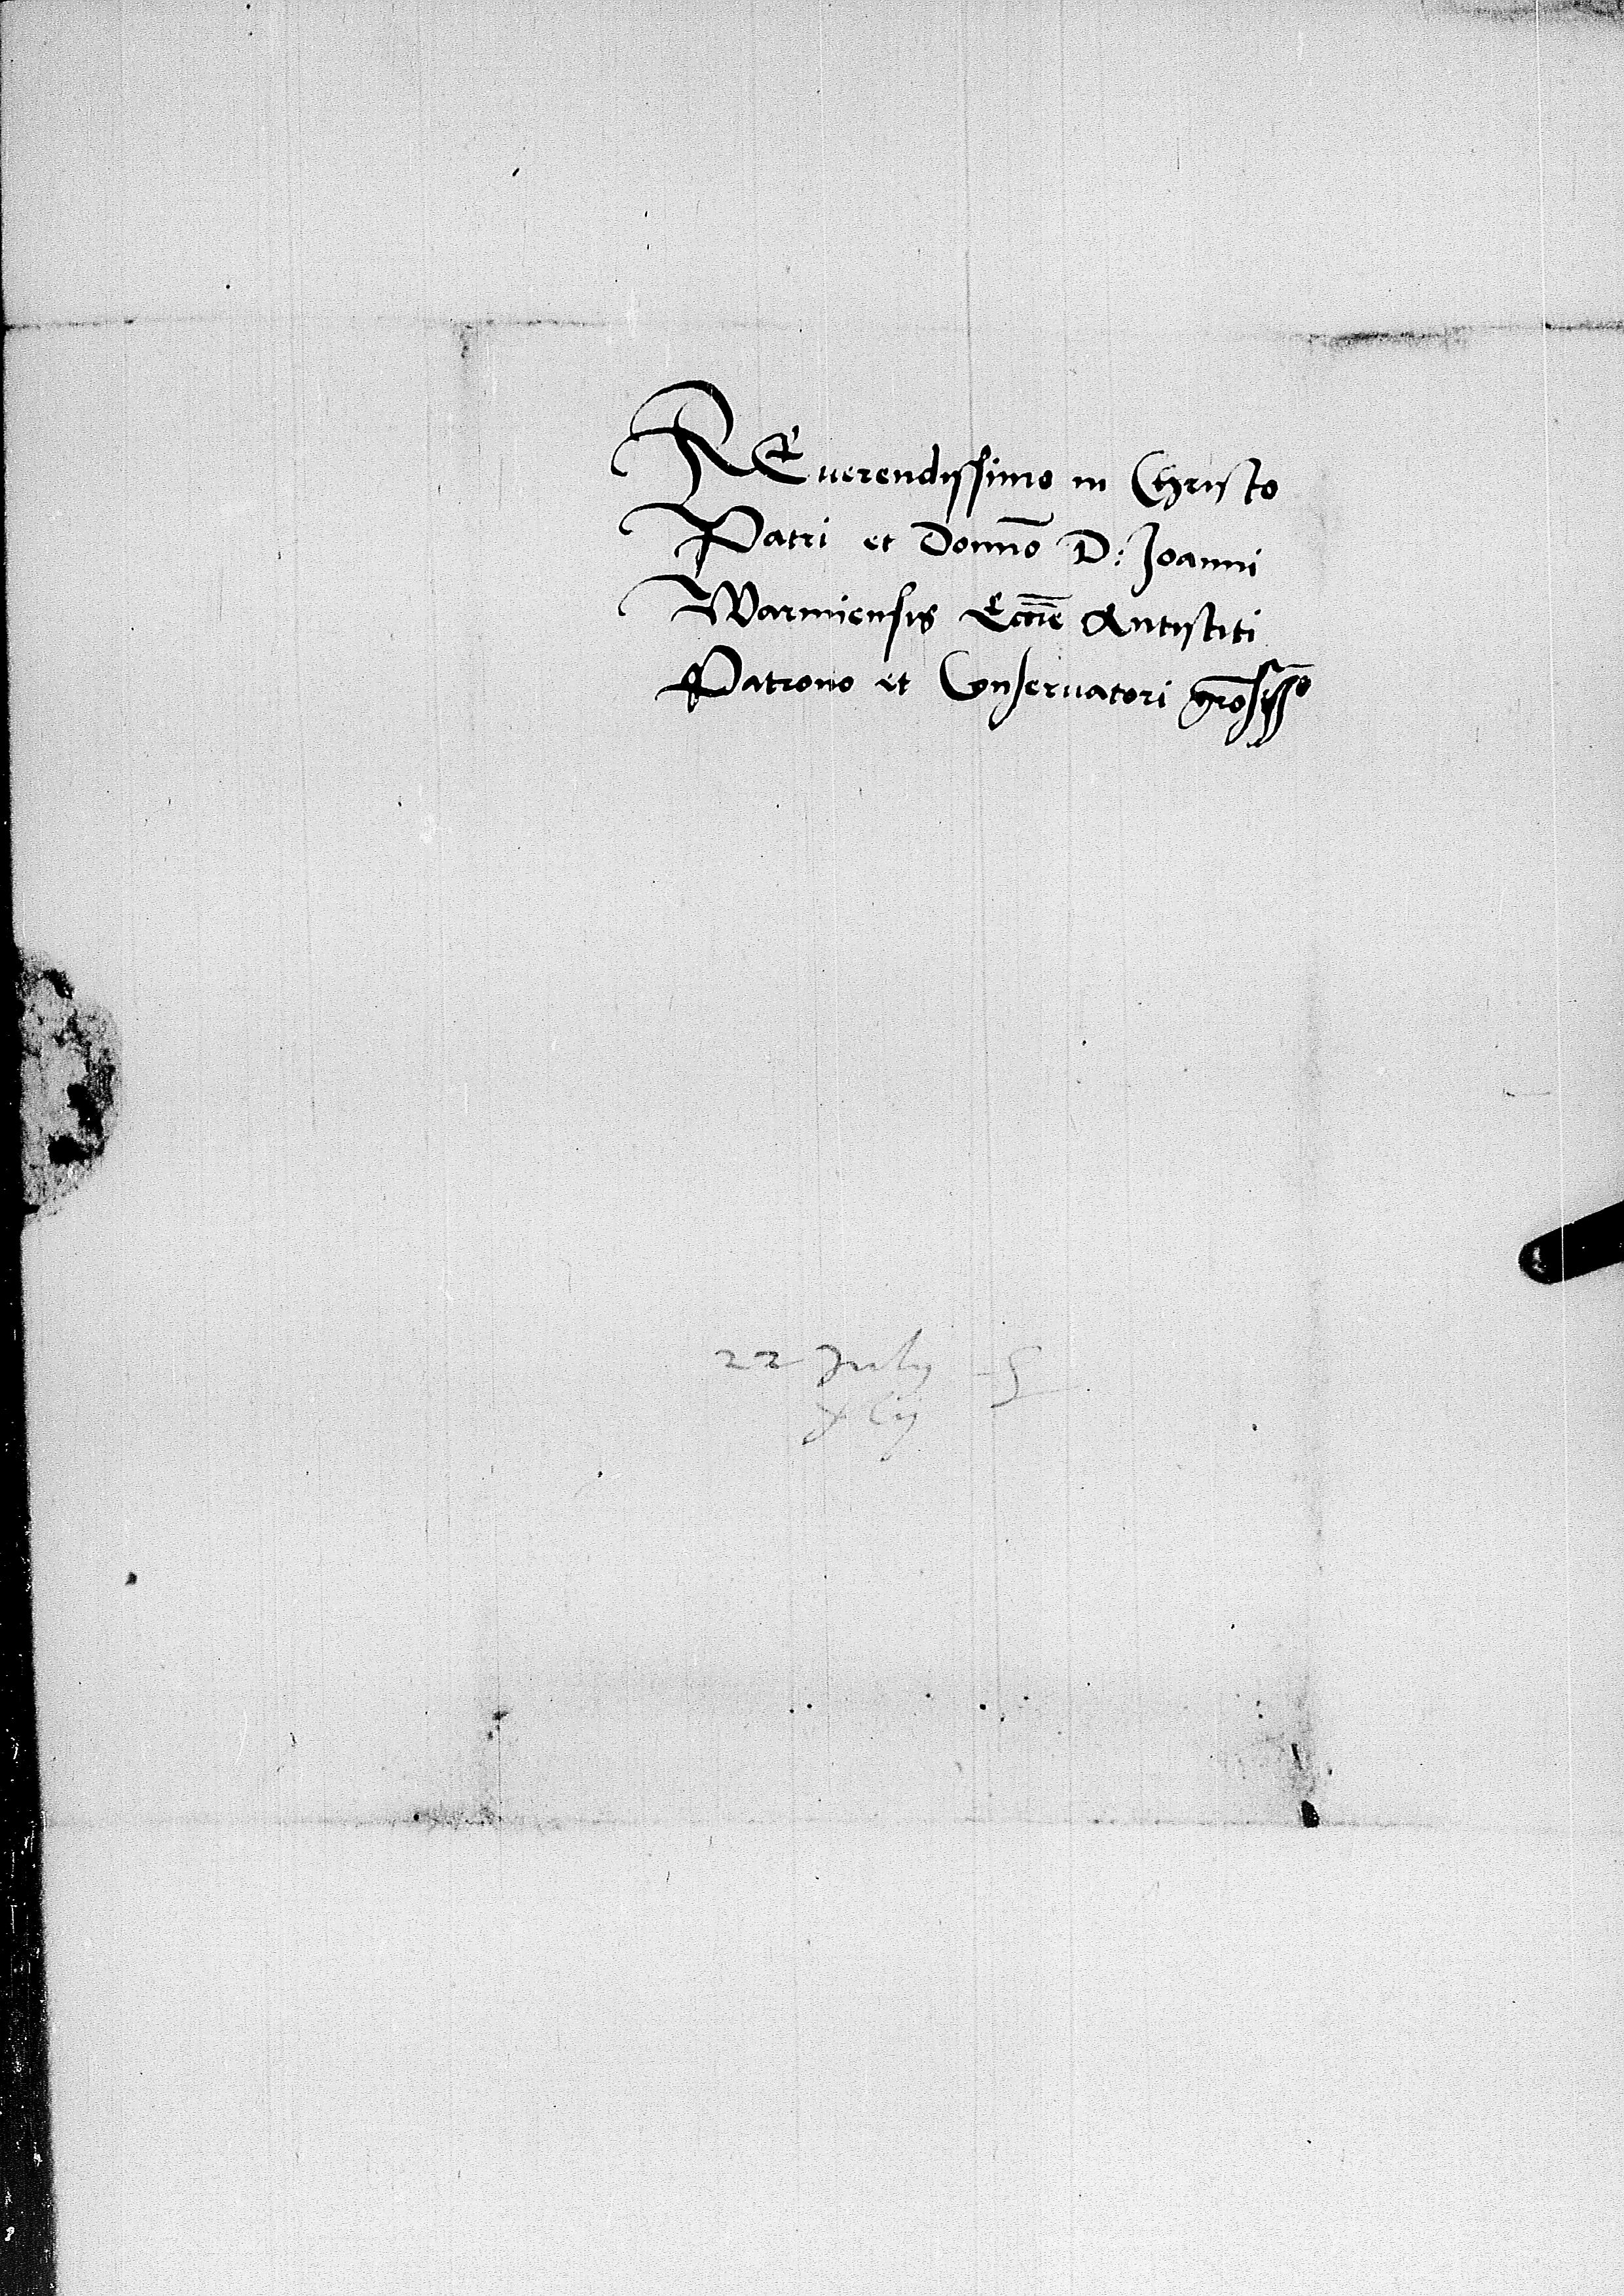 REuerendissimo in Christo
Patri et Domĩo D: Joanni
Warmiensis Eccɫie Antistiti
Patrono et Conseruatori grõsissº
22 July
xlij